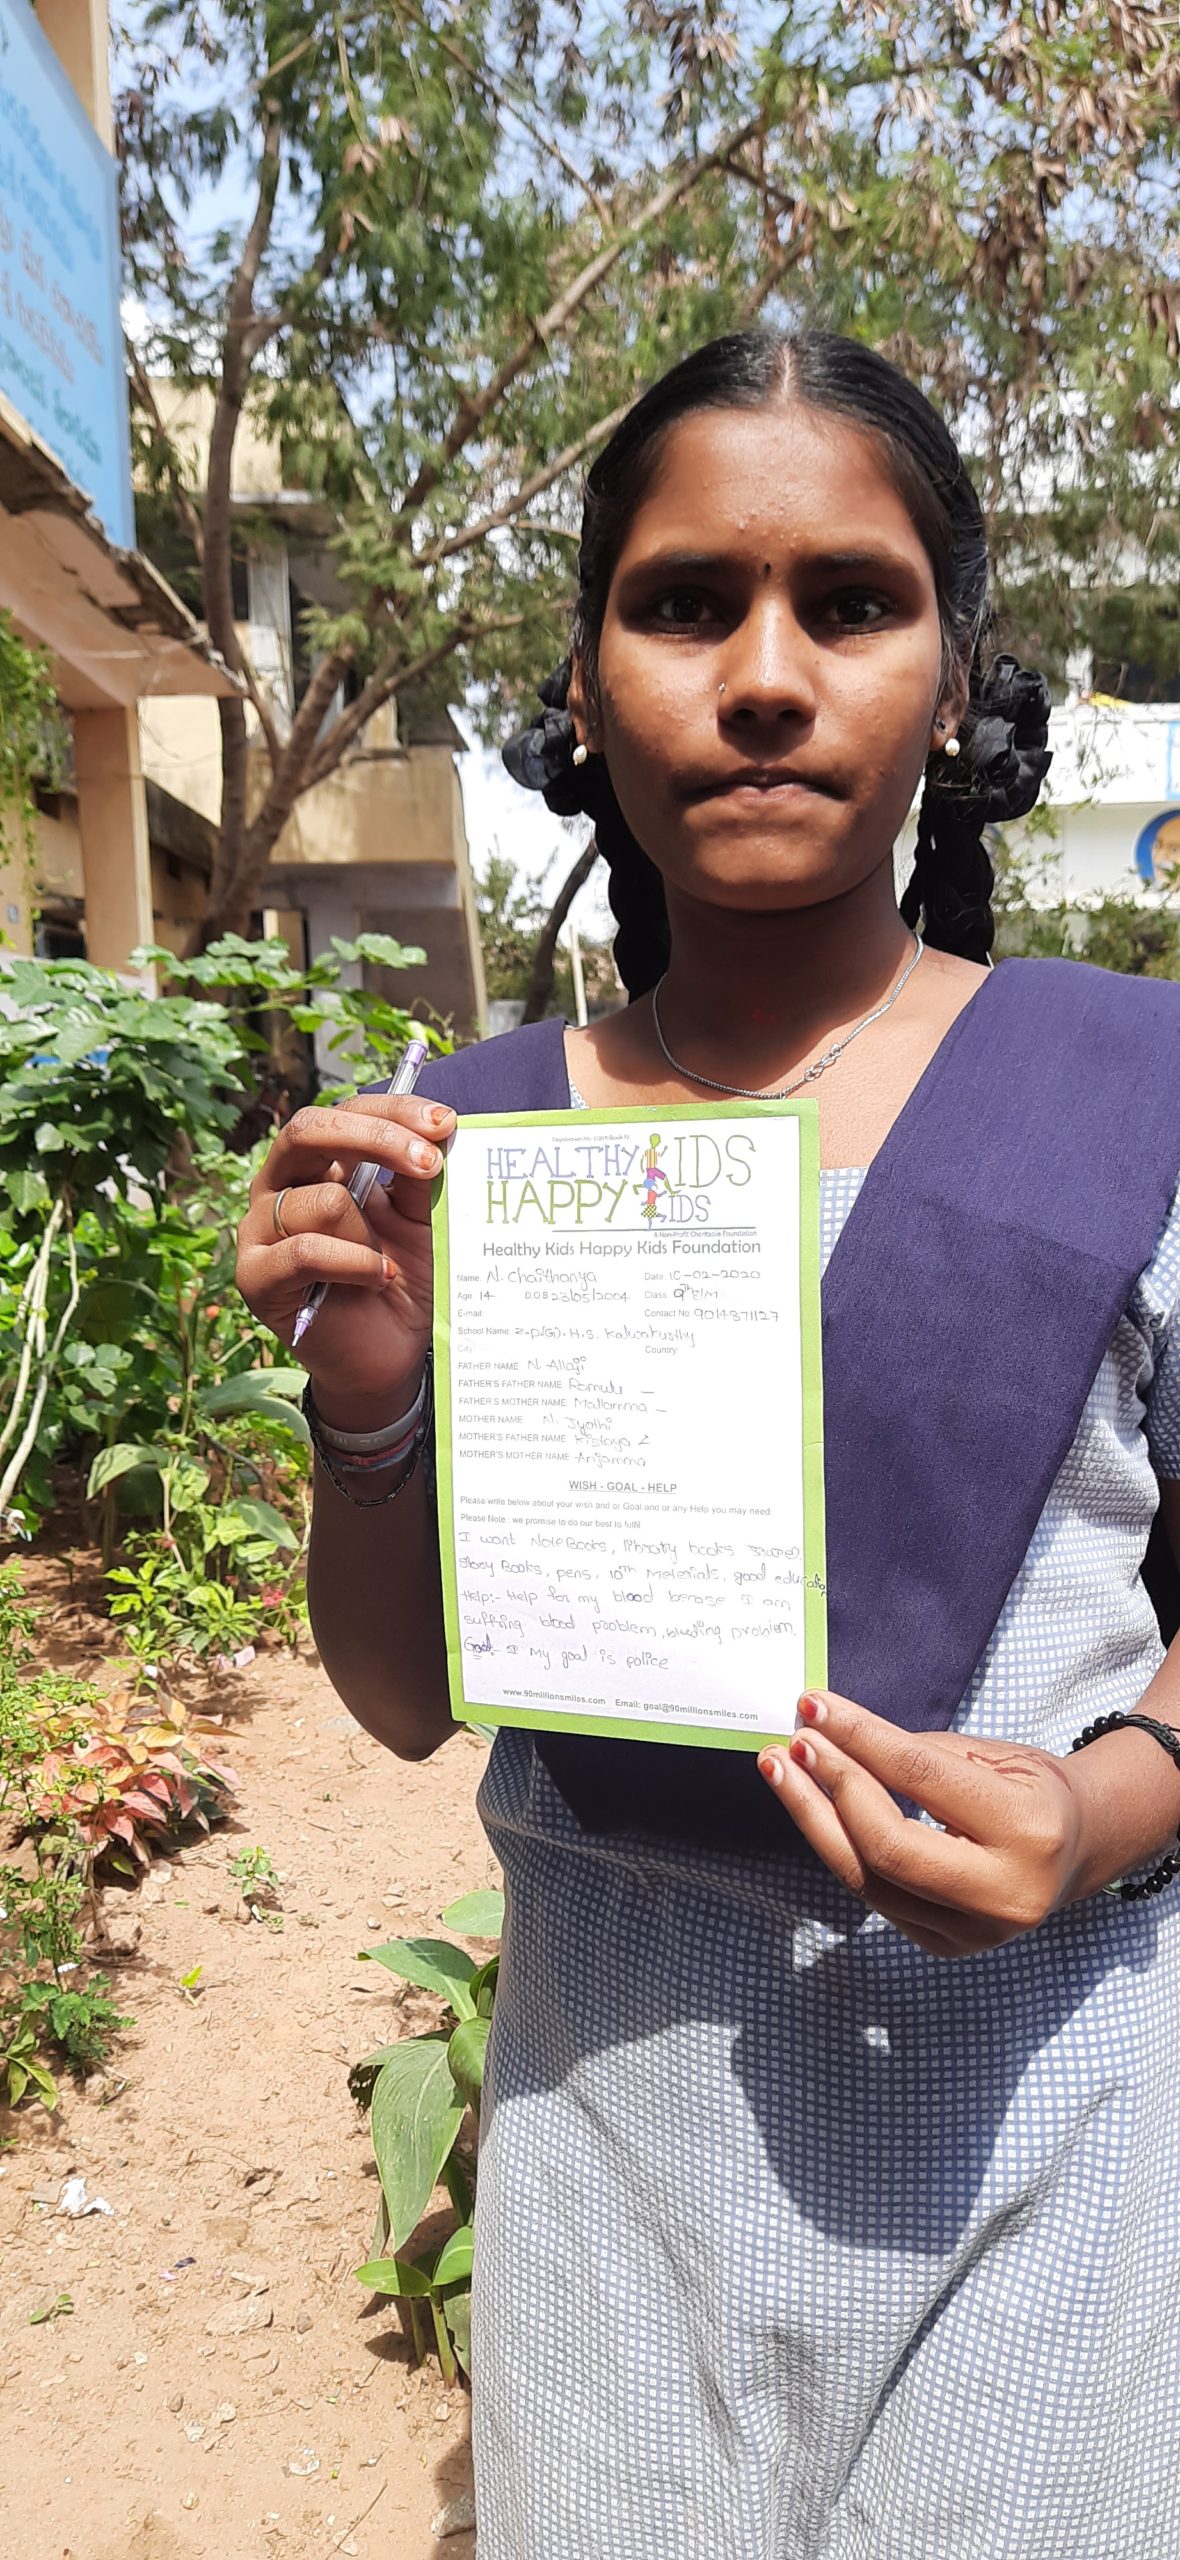 HEALTHY KIDS
HAPPY KIDS
A Non-Profit Charitable Foundation
Healthy Kids Happy Kids Foundation
Name: N. Chaithanya Date: 10-02-2020
Age: 14 D.O.B 23/05/2004 Class: 9th E/M
E-mail: Contact No 9014371127
School Name: Z.P.(G).H.S. Kalwakurthy
City: Country:
FATHER NAME N. Allaji
FATHER'S FATHER NAME Ramulu
FATHER'S MOTHER NAME Mallamma
MOTHER NAME N. Jyothi
MOTHER'S FATHER NAME Kistaya
MOTHER'S MOTHER NAME Anjamma
WISH - GOAL - HELP
Please write below about your wish and or Goal and or any Help you may need
Please Note : we promise to do our best to fulfil
I want Note Books, library books
Story Books, pens, 10th Meterials, good education
Help:- Help for my blood becase I am
suffring blood problem, bleeding problem.
Goal:- I My goal is police
www.90millionsmiles.com Email: goal@90millionsmiles.com